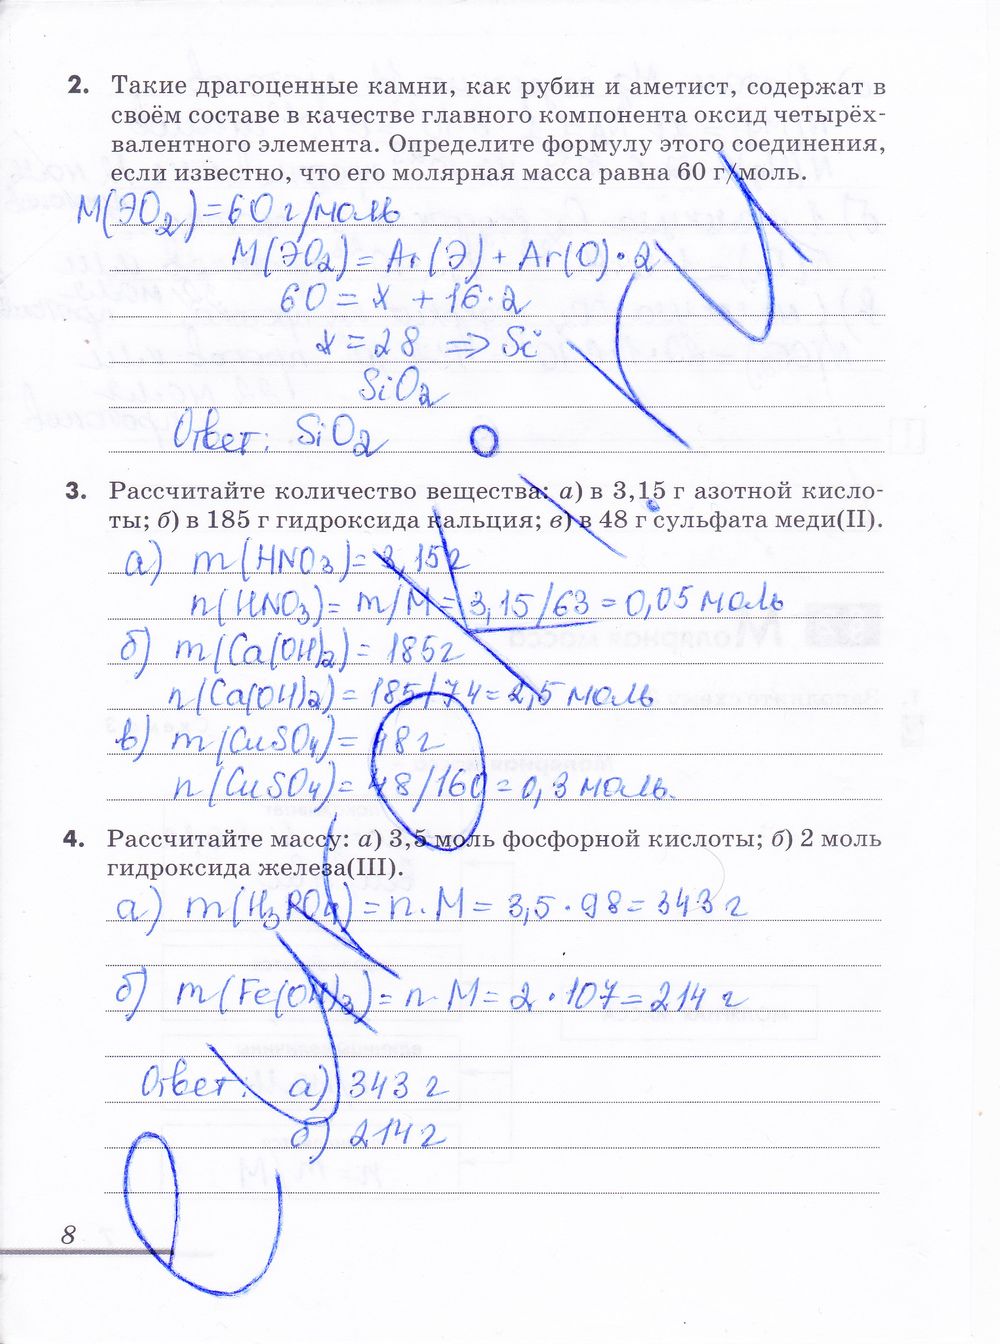 2. Такие драгоценные камни, как рубин и аметист, содержат в
своём составе в качестве главного компонента оксид четырёх-
валентного элемента. Определите формулу этого соединения,
если известно, что его молярная масса равна 60 г/моль.
M(ЭO₂)=60 г/моль
M(ЭO₂)= Ar(Э) + Ar(O)·2
60 = x + 16·2
x = 28 => Si
SiO₂
Ответ: SiO₂
3. Рассчитайте количество вещества: а) в 3,15 г азотной кисло-
ты; б) в 185 г гидроксида кальция; в) в 48 г сульфата меди(II).
а) m(HNO₃)= 3,15г
n(HNO₃)= m/M = 3,15/63 = 0,05 моль
б) m(Ca(OH)₂)= 185г
n(Ca(OH)₂)= 185/74= 2,5 моль
в) m(CuSO₄)= 48г
n(CuSO₄)= 48/160 = 0,3 моль.
4. Рассчитайте массу: а) 3,5 моль фосфорной кислоты; б) 2 моль
гидроксида железа(III).
а) m(H₃PO₄)= n·M = 3,5·98= 343 г
б) m(Fe(OH)₃)= n·M = 2·107=214 г
Ответ: а) 343 г
б) 214 г
8